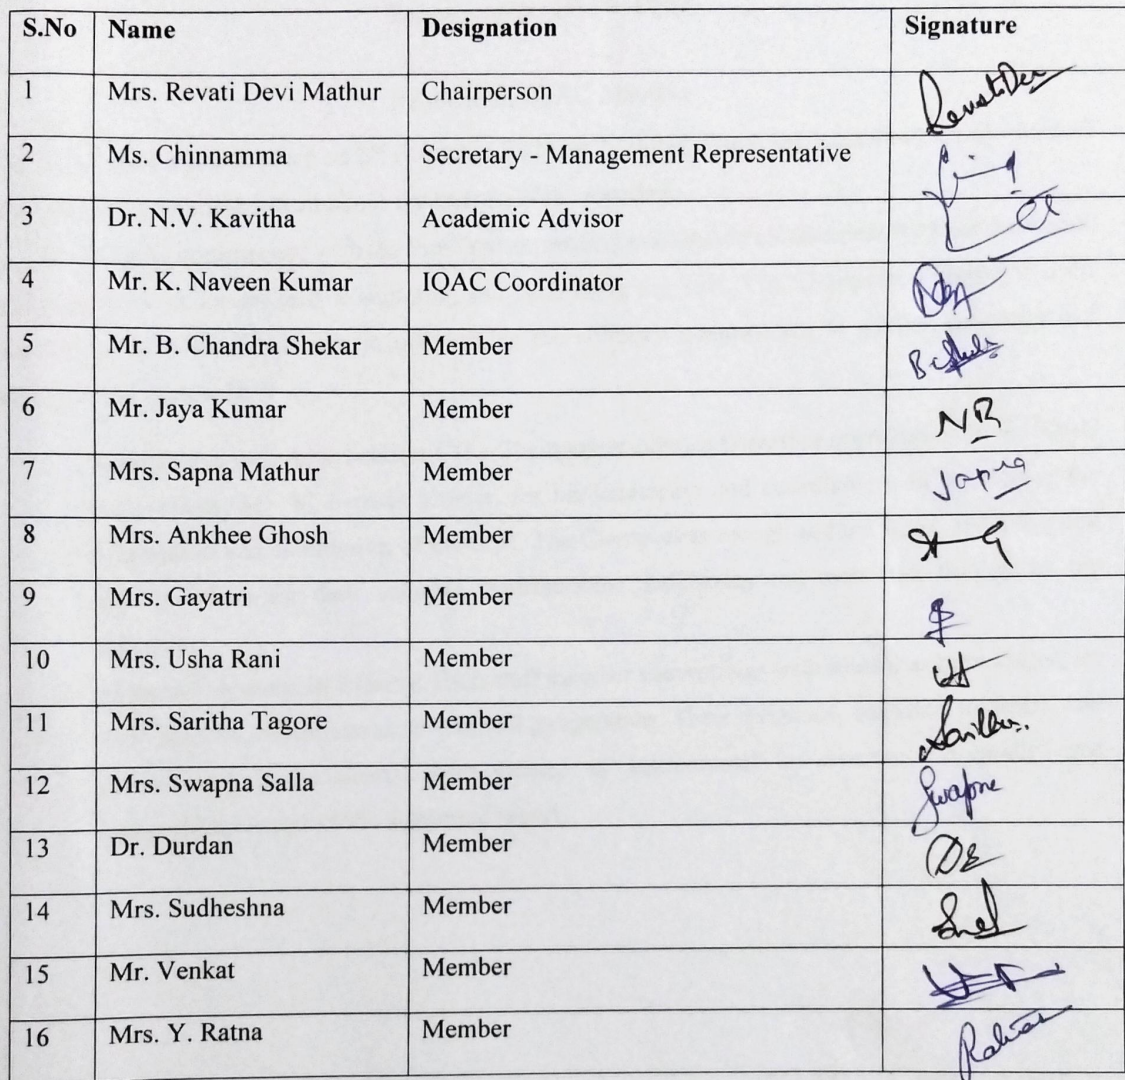 S.No Name Designation Signature
1 Mrs. Revati Devi Mathur Chairperson
2 Ms. Chinnamma Secretary - Management Representative
3 Dr. N.V. Kavitha Academic Advisor
4 Mr. K. Naveen Kumar IQAC Coordinator
5 Mr. B. Chandra Shekar Member
6 Mr. Jaya Kumar Member NB
7 Mrs. Sapna Mathur Member Sapna
8 Mrs. Ankhee Ghosh Member
9 Mrs. Gayatri Member
10 Mrs. Usha Rani Member
11 Mrs. Saritha Tagore Member
12 Mrs. Swapna Salla Member Swapna
13 Dr. Durdan Member
14 Mrs. Sudheshna Member
15 Mr. Venkat Member
16 Mrs. Y. Ratna Member